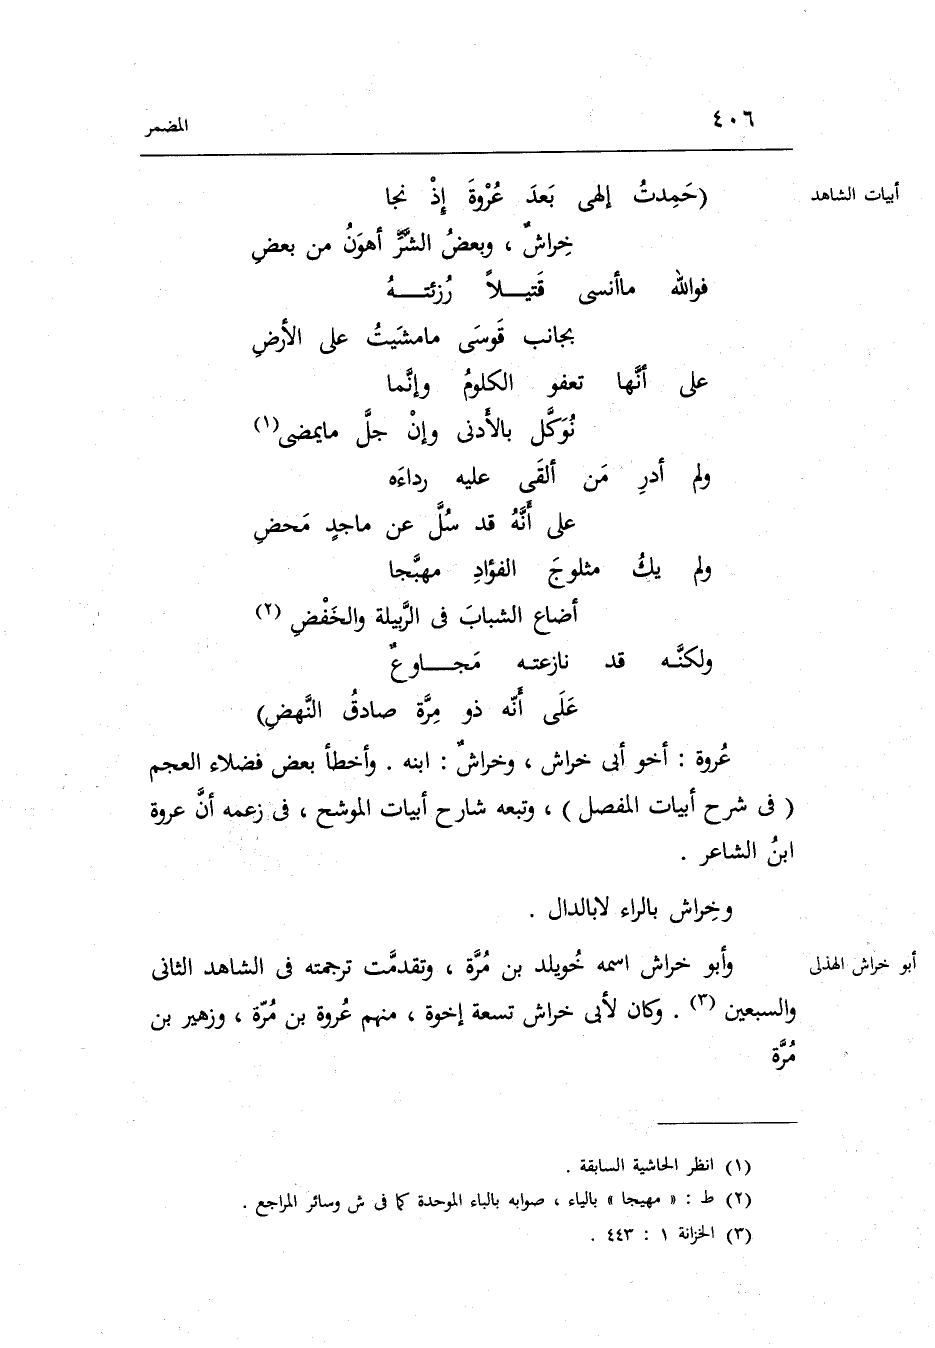 ٤٠٦
المضمر
أبيات الشاهد
(حَمِدتُ إلهى بَعدَ عُرْوةَ إِذْ نجا
خِراشٌ ، وبعضُ الشرِّ أهوَنُ من بعضِ
فوالله ماأنسى قَتيـــلاً رُزئتـــهُ
بجانب قَوسَى مامشَيتُ على الأرضِ
على أنَّها تعفو الكلومُ وإنَّما
نُوَكَّل بالأَدنى وإنْ جلَّ مايمضى(١)
ولم أدرِ مَن ألقَى عليه رداءَه
على أَنَّهُ قد سُلَّ عن ماجدٍ مَحضِ
ولم يكُ مثلوجَ الفؤادِ مهبَّجا
أضاع الشبابَ فى الرَّبيلة والخَفْضِ (٢)
ولكنَّـه قد نازعتـه مَجـــاوعٌ
عَلَى أَنّه ذو مِرَّة صادقُ النَّهضِ)
عُروة : أخو أبى خراش ، وخراشٌ : ابنه . وأخطأ بعض فضلاء العجم
( فى شرح أبيات المفصل ) ، وتبعه شارح أبيات الموشح ، فى زعمه أنَّ عروة
ابنُ الشاعر .
وخِراش بالراء لابالدال .
أبو خراش الهذلى
وأبو خراش اسمه خُويلد بن مُرَّة ، وتقدمَّت ترجمته فى الشاهد الثانى
والسبعين (٣) . وكان لأبى خراش تسعة إخوة ، منهم عُروة بن مُرّة ، وزهير بن
مُرَّة
(١) انظر الحاشية السابقة .
(٢) ط : « مهيجا » بالياء ، صوابه بالباء الموحدة كما فى ش وسائر المراجع .
(٣) الخزانة ١ : ٤٤٣ .